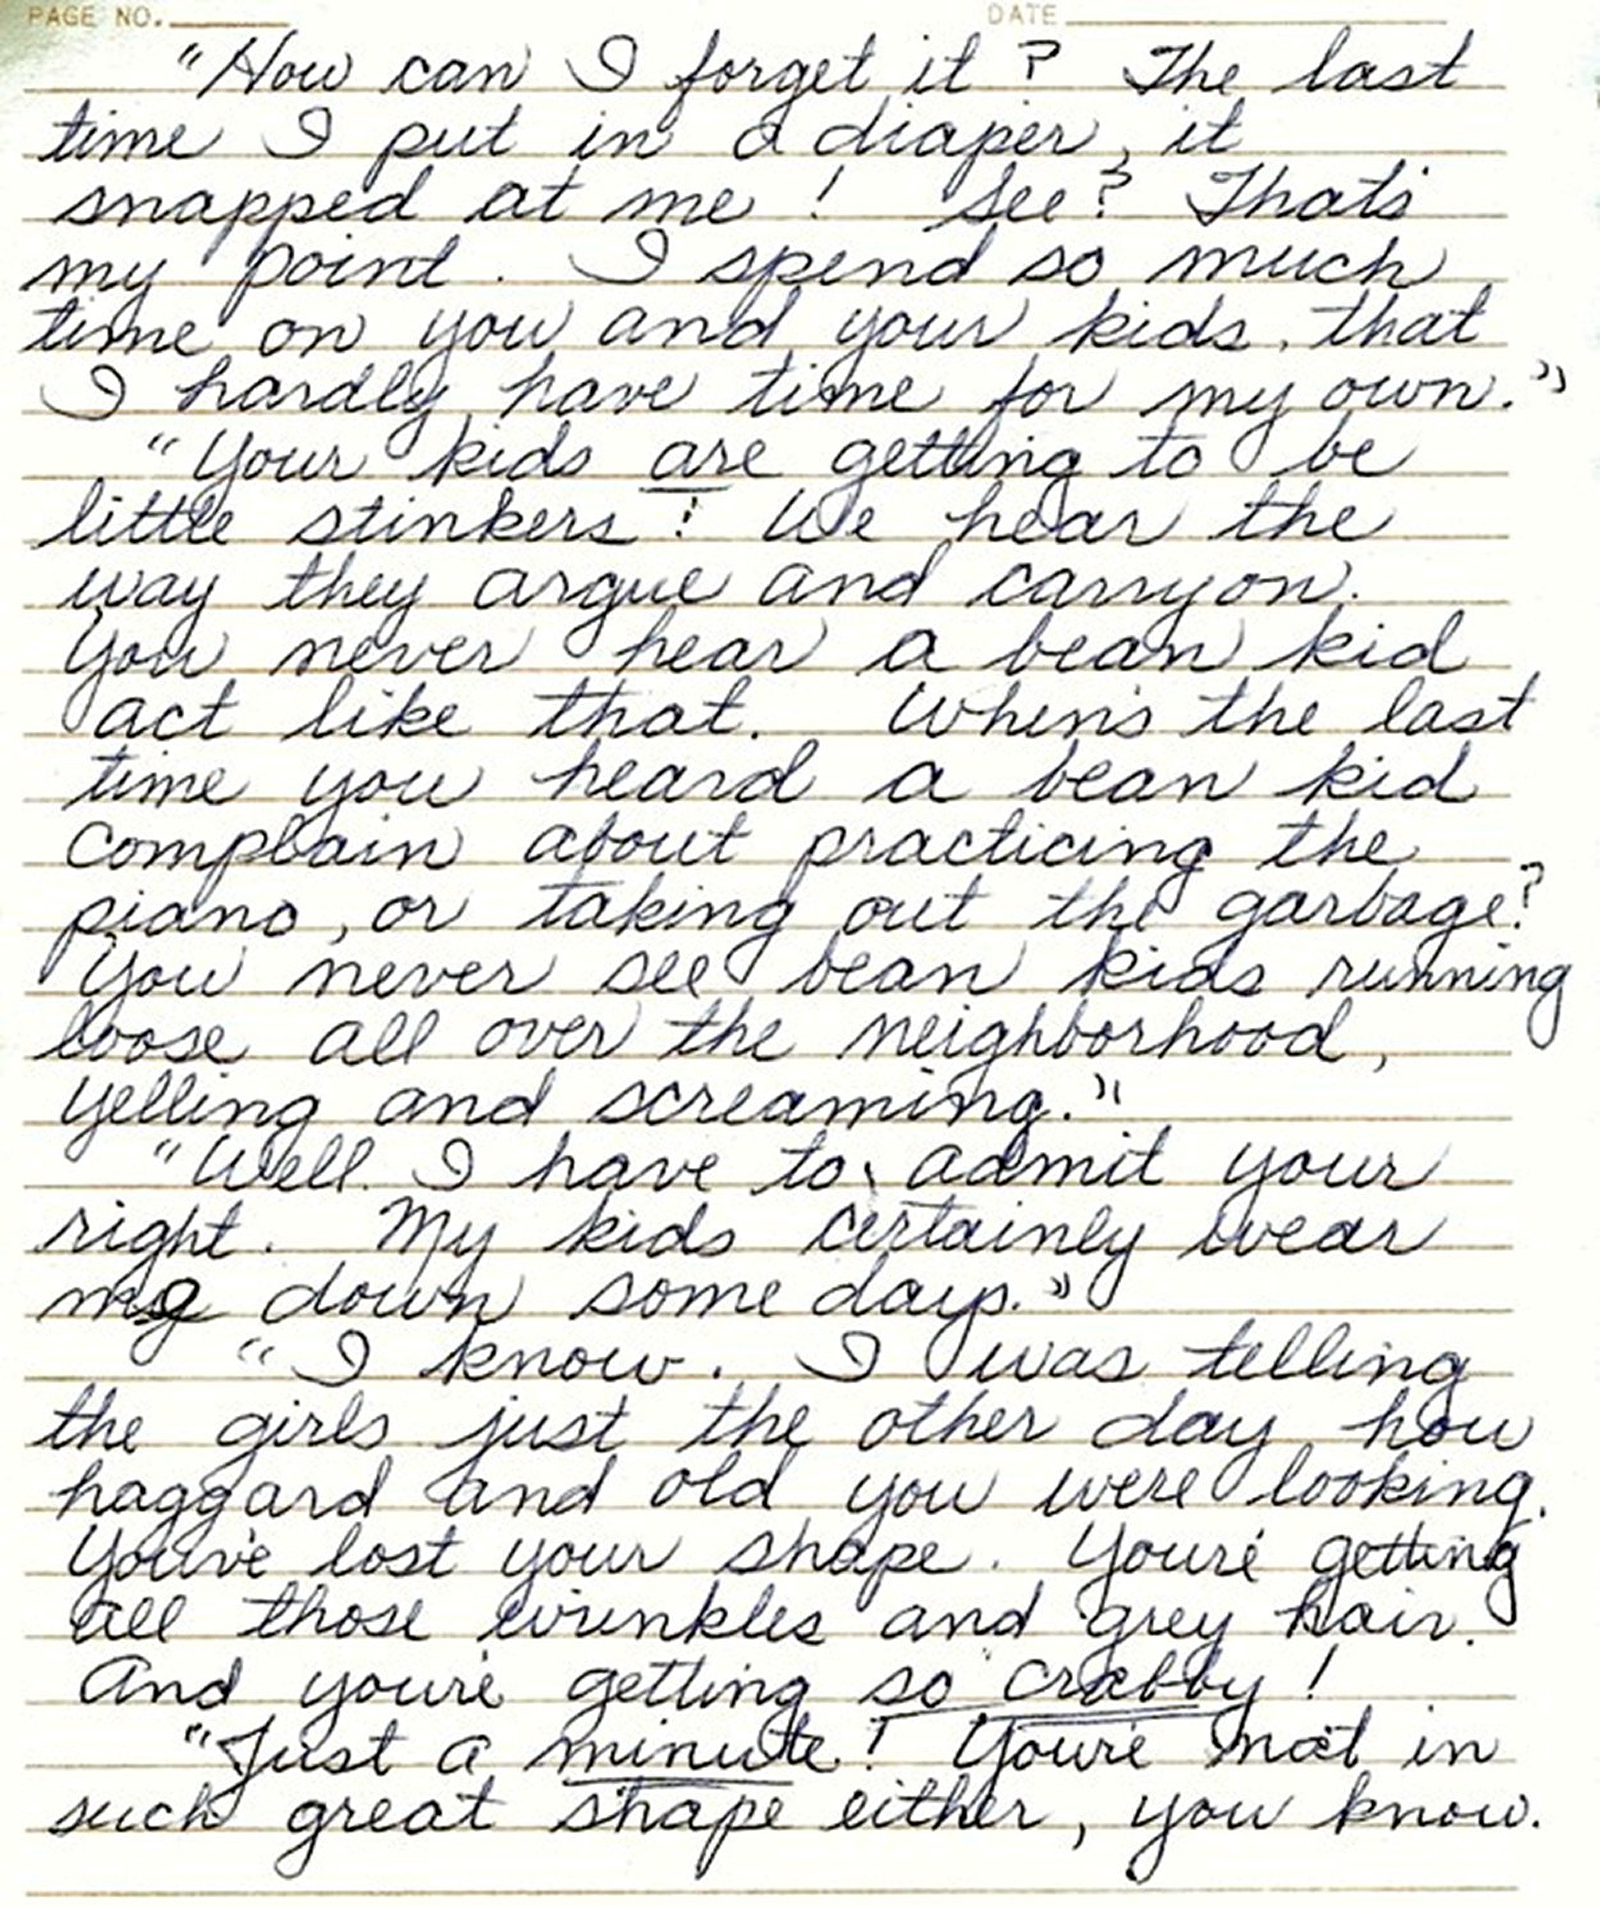 PAGE NO. DATE
"How can I forget it? The last
time I put in a diaper, it
snapped at me! See? That's
my point. I spend so much
time on you and your kids, that
I hardly have time for my own."
"Your kids are getting to be
little stinkers! We hear the
way they argue and carryon.
You never hear a bean kid
act like that. When's the last
time you heard a bean kid
complain about practicing the
piano, or taking out the garbage?
You never see bean kids running
loose all over the neighborhood,
yelling and screaming."
"Well. I have to admit your
right. My kids certainly wear
me down some days."
"I know. I was telling
the girls just the other day how
haggard and old you were looking.
You've lost your shape. You're getting
all those wrinkles and grey hair.
And you're getting so crabby!
"Just a minute! You're not in
such great shape either, you know.